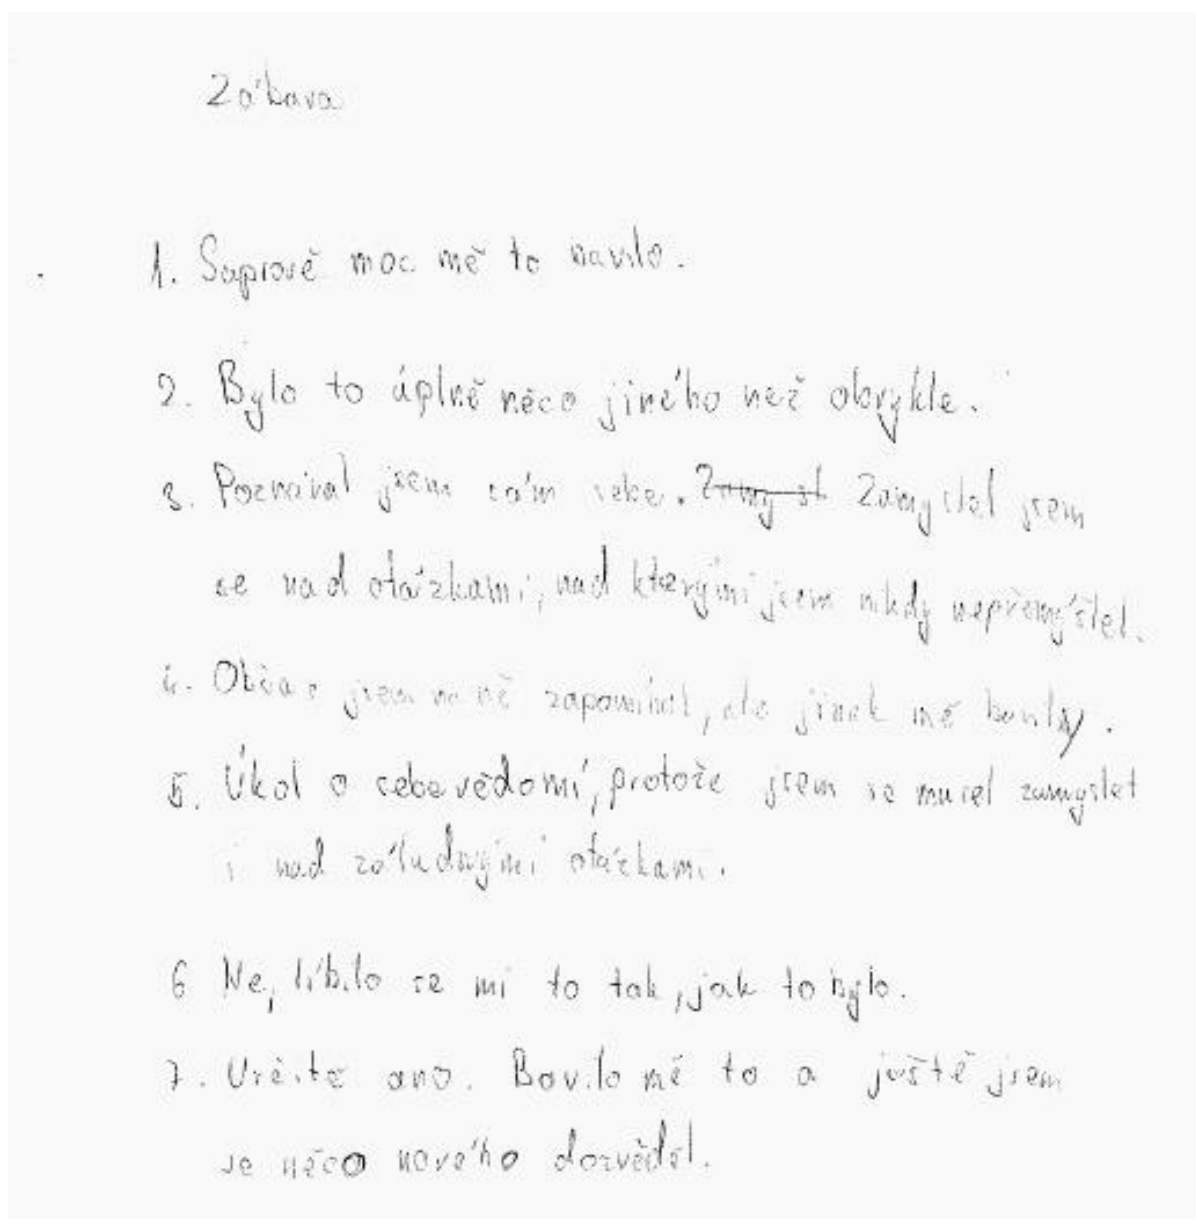 Zábava
1. Suprově moc mě to bavilo.
2. Bylo to úplně něco jiného než obvykle.
3. Poznával jsem sám sebe. Zamysl Zamyslel jsem
se nad otázkami, nad kterými jsem nikdy nepřemýšlel.
4. Občas jsem na ně zapomínal, ale jinak mě bavily.
5. Úkol o sebevědomí, protože jsem se musel zamyslet
i nad záludnými otázkami.
6 Ne, líbilo se mi to tak, jak to bylo.
7. Určitě ano. Bavilo mě to a ještě jsem
se něco nového dozvěděl.